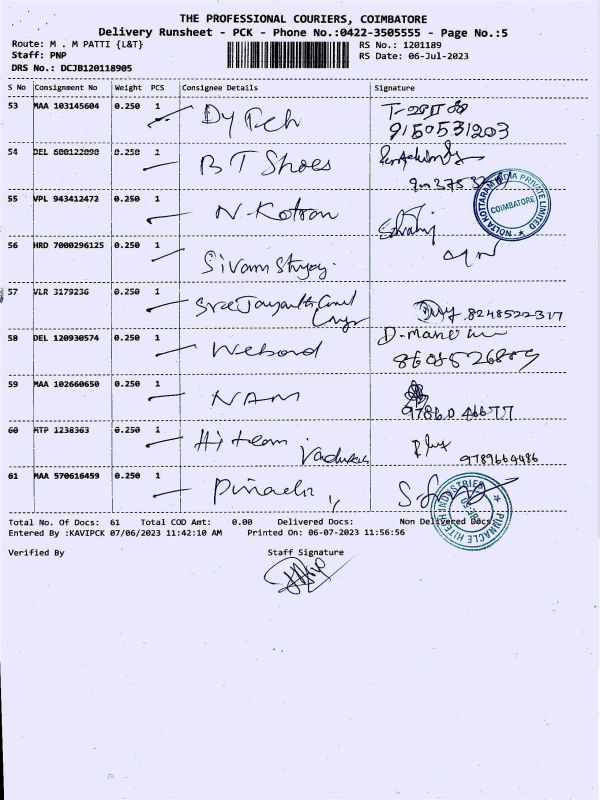 THE PROFESSIONAL COURIERS, COIMBATORE
Delivery Runsheet - PCK - Phone No.:0422-3505555 - Page No.:5
Route: M . M PATTI {L&T}
RS No.: 1201189
Staff: PNP
RS Date: 06-Jul-2023
DRS No.: DCJB120118905
S No Consignment No Weight PCS Consignee Details Signature
53 MAA 103145604 0.250 1
9150531203
54 DEL 600122090 0.250 1 B T Shoes
55 VPL 943412472 0.250 1 N-Kotran
NOLTA KOTTARAM INDIA PRIVATE LIMITED
COIMBATORE
56 HRD 7000296125 0.250 1
57 VLR 3179236 0.250 1 Sree Jayanth
8248522317
58 DEL 120930574 0.250 1
59 MAA 102660650 0.250 1 NAM
60 MTP 1238363 0.250 1 Hi team
9789664486
61 MAA 570616459 0.250 1
PINNACLE HITECH INDUSTRIES
Total No. Of Docs: 61 Total COD Amt: 0.00 Delivered Docs: Non Delivered Docs:
Entered By :KAVIPCK 07/06/2023 11:42:10 AM Printed On: 06-07-2023 11:56:56
Verified By Staff Signature